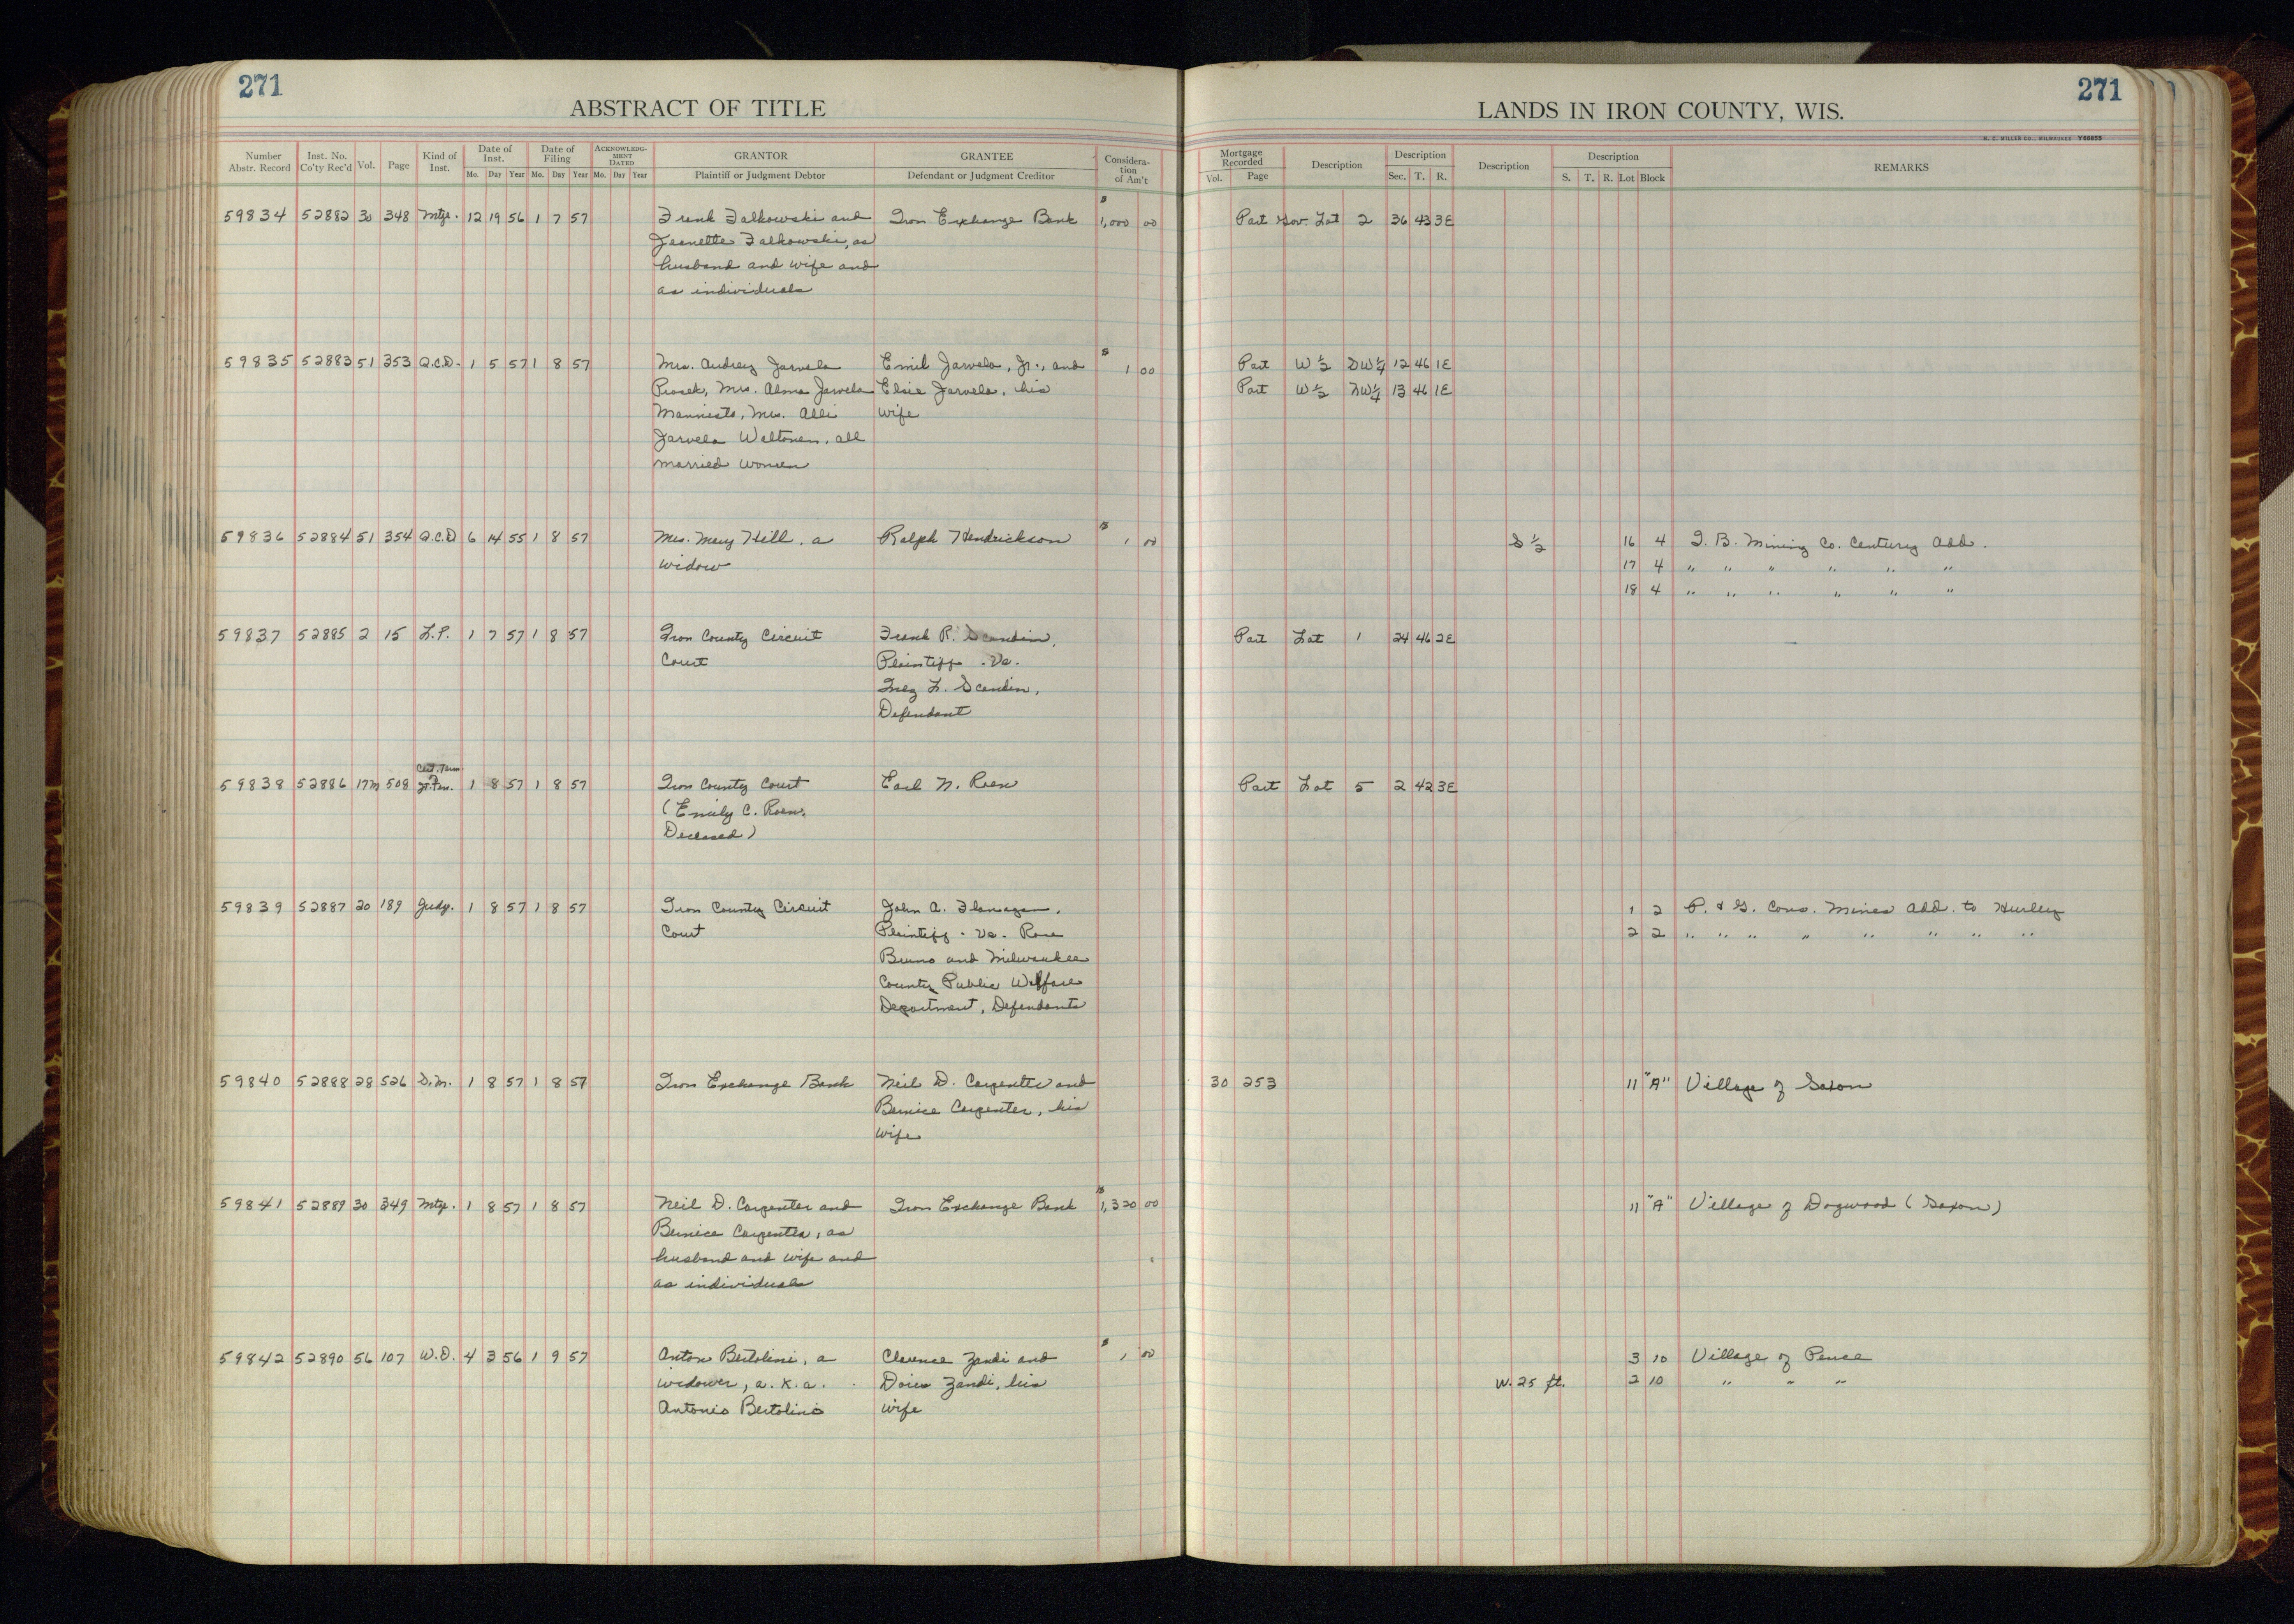 271
ABSTRACT OF TITLE
Number Abstr. Record Inst. No. Co'ty Rec'd Vol. Page Kind of Inst. Date of Inst. Mo. Day Year Date of Filing Mo. Day Year ACKNOWLEDGMENT DATED Mo. Day Year GRANTOR Plaintiff or Judgment Debtor GRANTEE Defendant or Judgment Creditor Consideration of Am't
LANDS IN IRON COUNTY, WIS.
271
H. C. MILLER CO., MILWAUKEE Y66855
Mortgage Recorded Vol. Page Description Description Sec. T. R. Description Description S. T. R. Lot Block REMARKS
59834 52882 30 348 Mtge. 12 19 56 1 7 57 Frank Falkowski and Iron Exchange Bank $1,000 00 Part Gov. Lot 2 36 43 3E
Jeanette Falkowski, as
husband and wife and
as individuals
59835 52883 51 353 Q.C.D. 1 5 57 1 8 57 Mrs. Audrey Jarvela Emil Jarvela, Jr., and $1 00 Part W 1/2 SW 1/4 12 46 1E
Prosek, Mrs. Alma Jarvela Elsie Jarvela, his Part W 1/2 NW 1/4 13 46 1E
Mannisto, Mrs. Alli wife
Jarvela Waltonen, all
married women
59836 52884 51 354 Q.C.D 6 14 55 1 8 57 Mrs. Mary Hill, a Ralph Hendrickson $1 00 S 1/2 16 4 I. B. Mining Co. Century Add.
widow 17 4 " " " " " "
18 4 " " " " " "
59837 52885 2 15 L.P. 1 7 57 1 8 57 Iron County Circuit Frank R. Scandin, Part Lot 1 24 46 2E
Court Plaintiff - Vs -
Inez L. Scandin,
Defendant
Cert. Term.
59838 52886 17M 508 Jt. Ten. 1 8 57 1 8 57 Iron County Court Earl N. Roen Part Lot 5 2 42 3E
(Emily C. Roen,
Deceased)
59839 52887 20 189 Judg. 1 8 57 1 8 57 Iron County Circuit John A. Flanagan, 1 2 P. & G. Cons. Mines Add. to Hurley
Court Plaintiff - Vs - Rose 2 2 " " " " " " " "
Bruno and Milwaukee
County Public Welfare
Department, Defendants
59840 52888 28 526 S.M. 1 8 57 1 8 57 Iron Exchange Bank Neil D. Carpenter and 30 253 11 "A" Village of Saxon
Bernice Carpenter, his
wife
59841 52889 30 349 Mtge. 1 8 57 1 8 57 Neil D. Carpenter and Iron Exchange Bank $1,320 00 11 "A" Village of Dogwood (Saxon)
Bernice Carpenter, as
husband and wife and
as individuals
59842 52890 56 107 W.D. 4 3 56 1 9 57 Anton Bertolini, a Clarence Zandi and $1 00 3 10 Village of Pence
widower, a.k.a. Doris Zandi, his W. 25 ft. 2 10 " " "
Antonio Bertolini wife